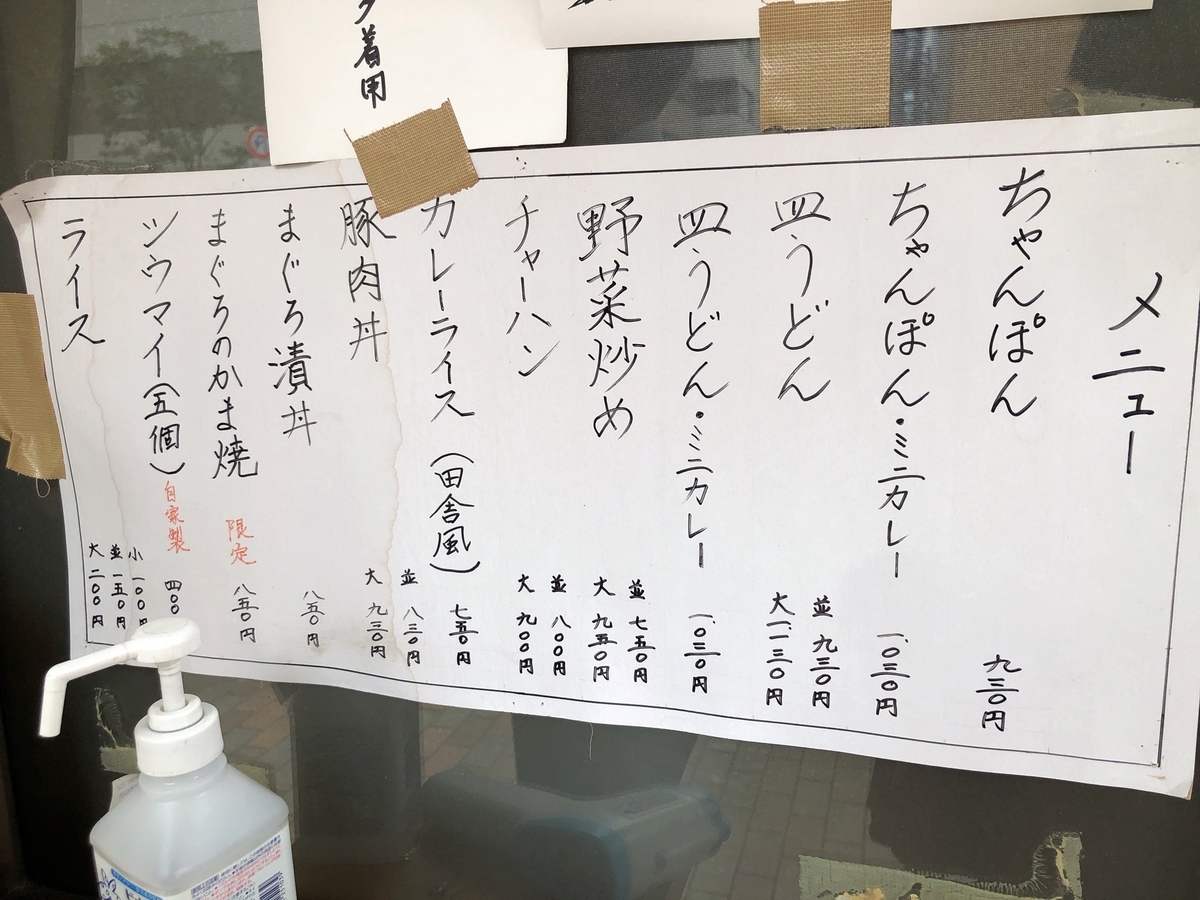 着用
メニュー
ちゃんぽん 九三〇円
ちゃんぽん・ミニカレー 一、〇三〇円
皿うどん 並 九三〇円
大 一、一三〇円
皿うどん・ミニカレー 一、〇三〇円
野菜炒め 並 七五〇円
大 九五〇円
チャーハン 並 八〇〇円
大 九〇〇円
カレーライス(田舎風) 七五〇円
豚肉丼 並 八三〇円
大 九三〇円
まぐろ漬丼 八五〇円
まぐろのかま焼 限定 八五〇円
シウマイ(五個) 自家製 四〇〇
ライス 小 一〇〇円
並 一五〇円
大 二〇〇円